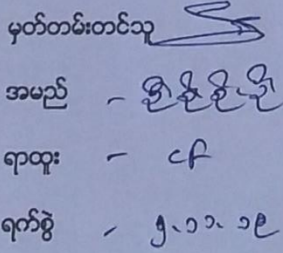 မှတ်တမ်းတင်သူ
အမည် -
ရာထူး - CF
ရက်စွဲ - ၅.၁၁.၁၉